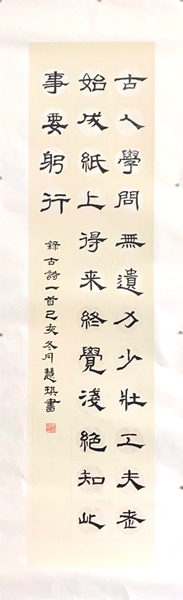 古人學問無遺力少壯工夫老
始成紙上得来終覺淺絕知此
事要躬行
錄古詩一首己亥冬月慧琪書